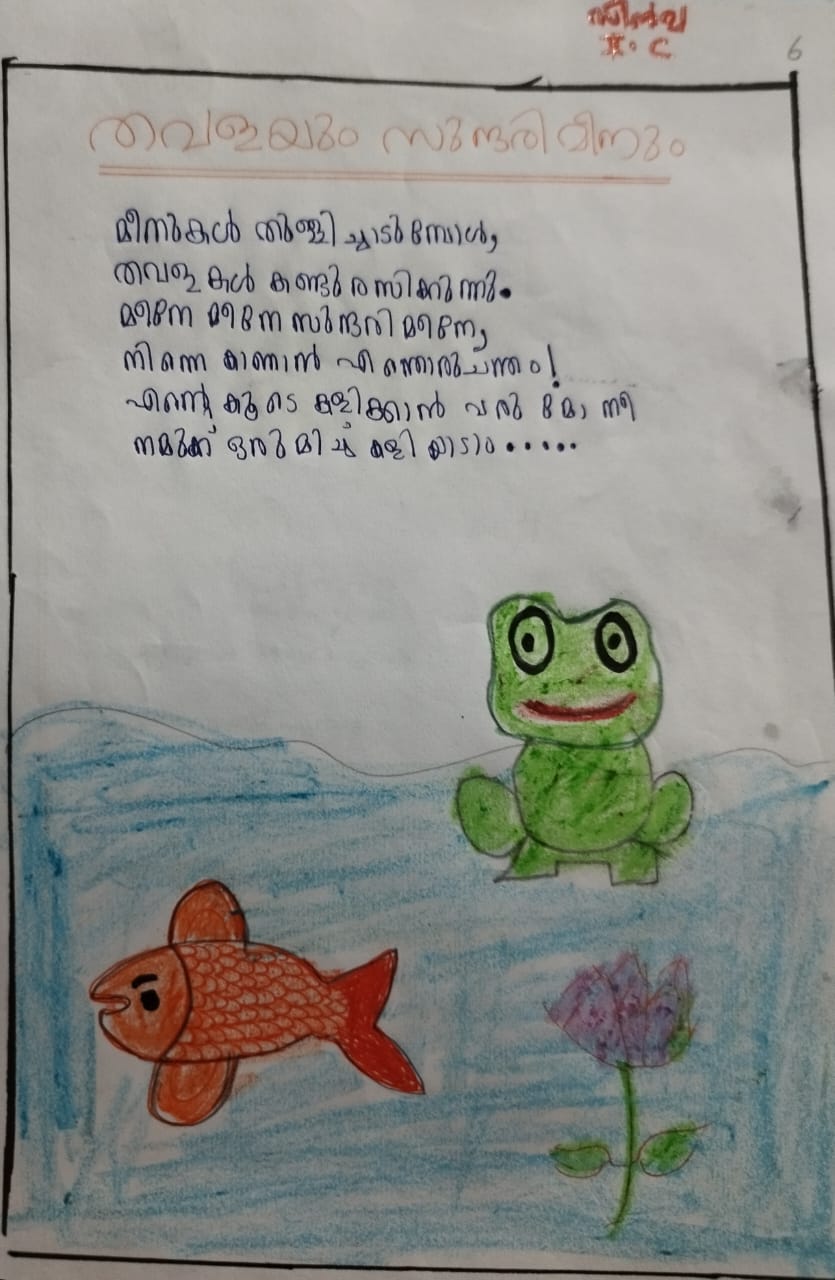 സിൽവ
I. C
6
തവളയും സുന്ദരി മീനും
മീനുകൾ തുള്ളിച്ചാടുമ്പോൾ,
തവളകൾ കണ്ടു രസിക്കുന്നു.
മീനേ മീനേ സുന്ദരി മീനേ,
നിന്നെ കാണാൻ എന്തൊരു ചന്തം!
എന്റെ കൂടെ കളിക്കാൻ വരുമോ നീ
നമുക്ക് ഒരുമിച്ച് കളിയാടാം.....